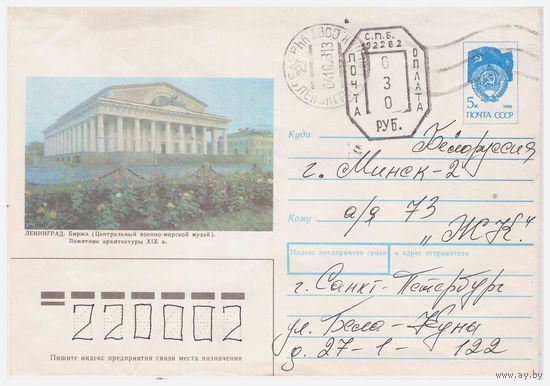 С.П.Б.
192282
ПОЧТА
ОПЛАТА
030
РУБ.
5к
1988
ПОЧТА СССР
Куда Белоруссия
г. Минск-2
Кому а/я 73
„МК"
ЛЕНИНГРАД. Биржа (Центральный военно-морской музей).
Памятник архитектуры XIX в.
Индекс предприятия связи и адрес отправителя
г. Санкт-Петербург
ул. Бела-Куны
д. 27-1- 122
220002
Пишите индекс предприятия связи места назначения
www.ay.by